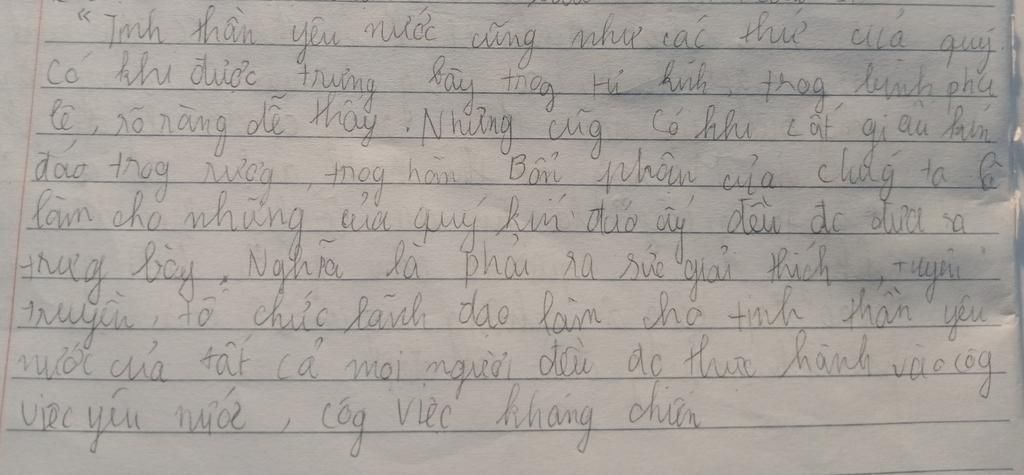 "Tinh thần yêu nước cũng như các thứ của quý.
Có khi được trưng bày trog tủ kính, trog bình pha
lê, rõ ràng dễ thấy. Nhưng cũg có khi cất giấu kín
đáo trog rương, trog hòm Bổn phận của chúg ta là
làm cho những của quý kín đáo ấy đều đc đưa ra
trưg bày. Nghĩa là phải ra sức giải thích, tuyên
truyền, tổ chức lãnh đạo làm cho tinh thần yêu
nước của tất cả mọi người đều đc thực hành vào côg
việc yêu nước, côg việc kháng chiến